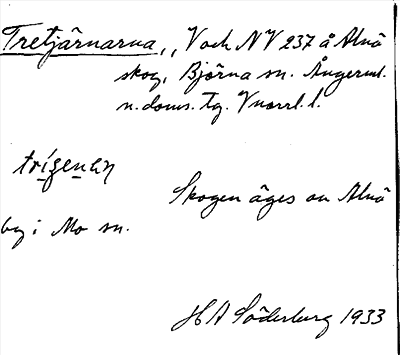 Tretjärnarna, V och NV 237 å Alnö
skog, Björna sn. Ångerml.
n. doms. tg. Vnorrl. l.
Skogen äges av Alnö
by i Mo sn.
H A Söderberg 1933